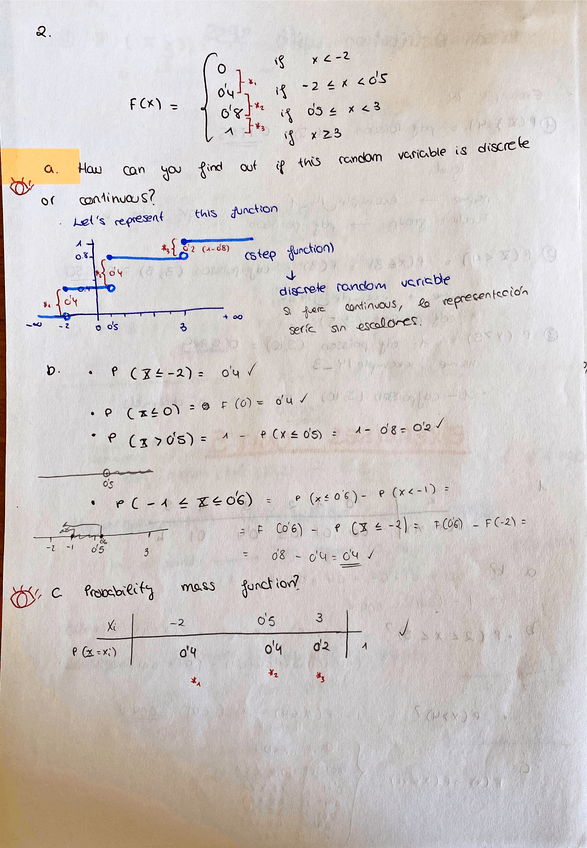 2.
F(x) = { 0 if x < -2
0'4 if -2 ≤ x < 0'5
0'8 if 0'5 ≤ x < 3
1 if x ≥ 3
*1
*2
*3
a. How can you find out if this random variable is discrete
or continuous?
Let's represent this function
1
0'8
0'4
*1 { 0'4
{ 0'4
*3 { 0'2 (1-0'8)
-∞ -2 0 0'5 3 +∞
(step function)
↓
discrete random variable
si fuera continuous, la representación
sería sin escalones.
b. • P (X ≤ -2) = 0'4 ✓
• P (X ≤ 0) = F (0) = 0'4 ✓
• P (X > 0'5) = 1 - P (X ≤ 0'5) = 1 - 0'8 = 0'2 ✓
0'5
• P (-1 ≤ X ≤ 0'6) = P (X ≤ 0'6) - P (X < -1) =
= F (0'6) - P (X ≤ -2) = F(0'6) - F(-2) =
-2 -1 0'5 3
= 0'8 - 0'4 = 0'4 ✓
C Probability mass function?
Xi -2 0'5 3
P (X = xi) 0'4 0'4 0'2 1 ✓
*1 *2 *3